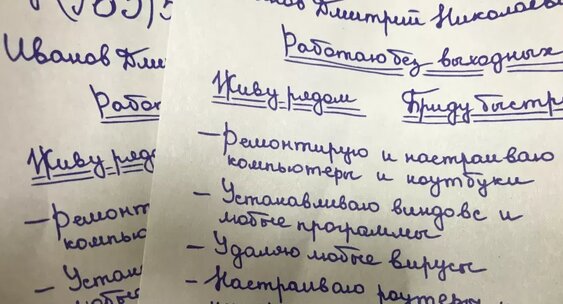 Иванов Дми
Рабо
Живу рядо
— Ремонт
компью
— Устан
любые
Дмитрий Николаев
Работаю без выходных
Живу рядом Приду быстр
— Ремонтирую и настраиваю
компьютеры и ноутбуки
— Устанавливаю виндовс и
любые программы
— Удаляю любые вирусы
— Настраиваю роутеры